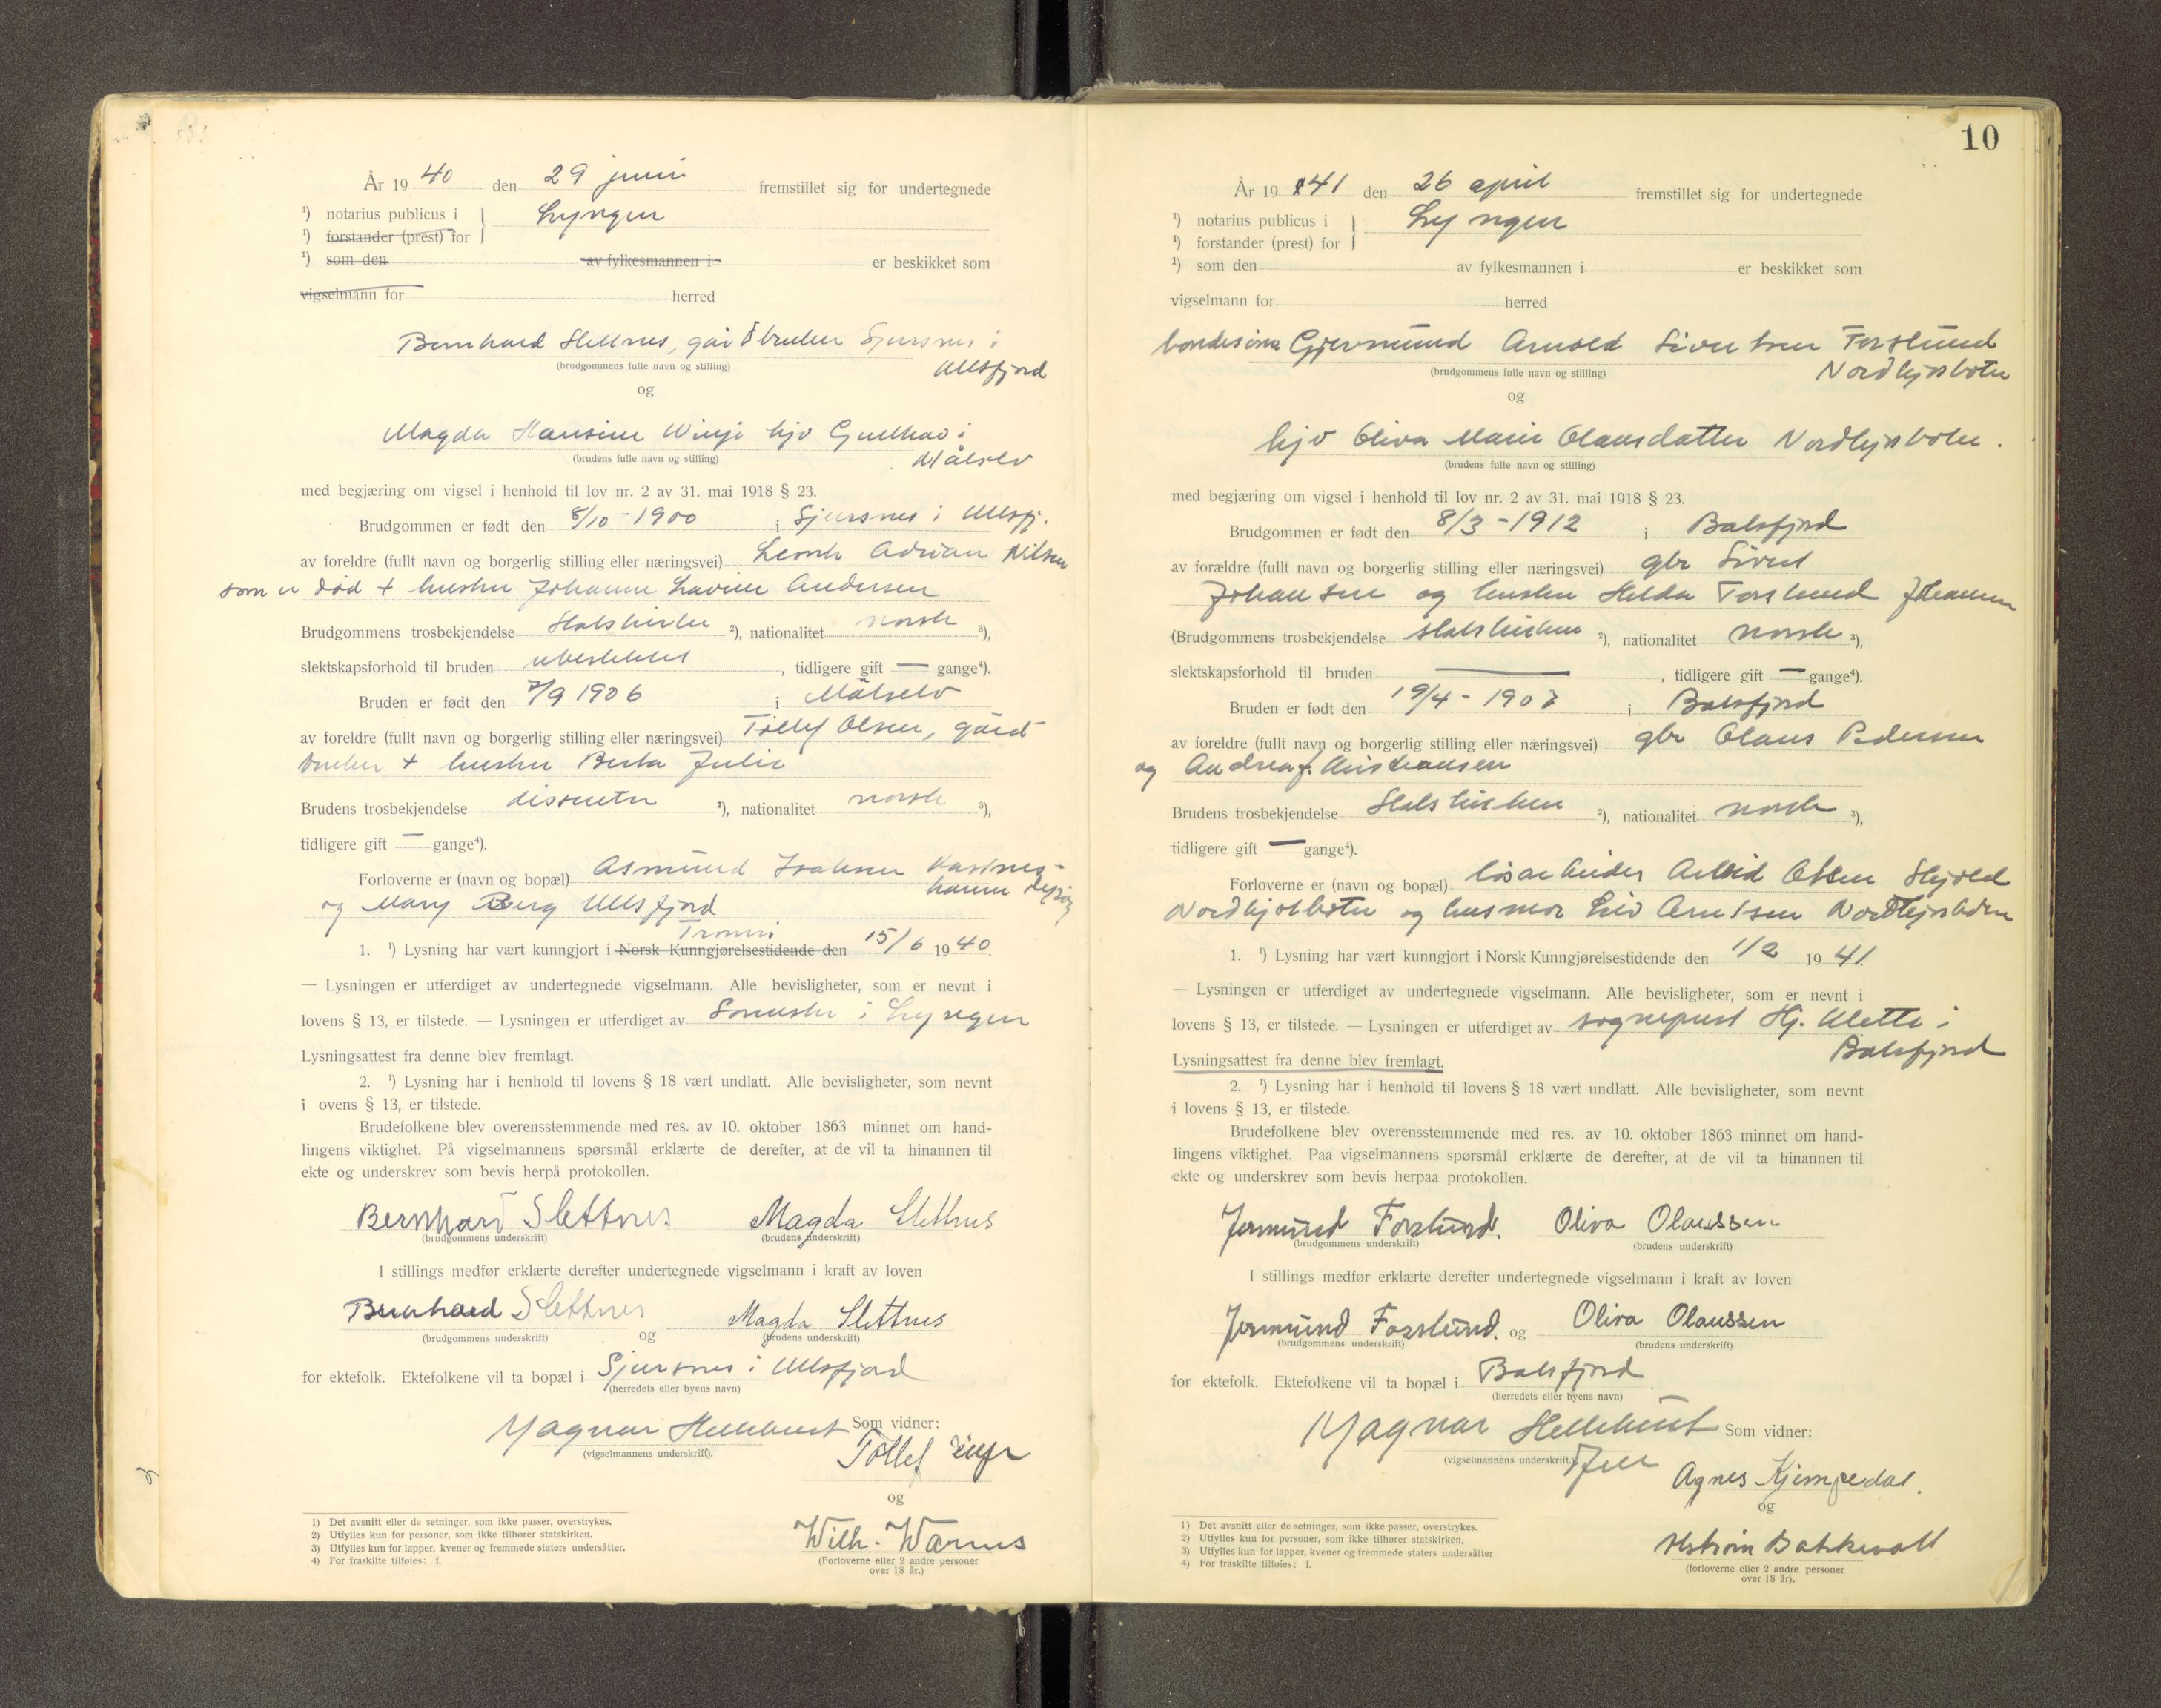 År 19 40 den 29 juni fremstillet sig for undertegnede
¹) notarius publicus i } Lyngen
¹) forstander (prest) for
¹) som den av fylkesmannen i er beskikket som
vigselmann for herred
Bernhard Slettnes, gårdbruker Sjursnes i
Ullsfjord
(brudgommens fulle navn og stilling)
og
Magda Hansine Winje hjv Gullhav i
Målselv
(brudens fulle navn og stilling)
med begjæring om vigsel i henhold til lov nr. 2 av 31. mai 1918 § 23.
Brudgommen er født den 8/10 - 1900 i Sjursnes i Ullsfj.
av foreldre (fullt navn og borgerlig stilling eller næringsvei) Adrian Nilsen
som er død + hustru Johanne Lavine Andersen
Brudgommens trosbekjendelse Statskirken ²), nationalitet norsk ³),
slektskapsforhold til bruden ubeslektet , tidligere gift — gange⁴).
Bruden er født den 7/9 1906 i Målselv
av foreldre (fullt navn og borgerlig stilling eller næringsvei) Olsen, gård
bruker + hustru Berta Julie
Brudens trosbekjendelse dissenter ²), nationalitet norsk ³),
tidligere gift — gange⁴).
Forloverne er (navn og bopæl) Asmund Isaksen
og Mary Berg Ullsfjord
Tromsø
1. ¹) Lysning har vært kunngjort i Norsk Kunngjørelsestidende den 15/6 19 40.
— Lysningen er utferdiget av undertegnede vigselmann. Alle bevisligheter, som er nevnt i
lovens § 13, er tilstede. — Lysningen er utferdiget av i Lyngen
Lysningsattest fra denne blev fremlagt.
2. ¹) Lysning har i henhold til lovens § 18 vært undlatt. Alle bevisligheter, som nevnt
i ovens § 13, er tilstede.
Brudefolkene blev overensstemmende med res. av 10. oktober 1863 minnet om hand-
lingens viktighet. På vigselmannens spørsmål erklærte de derefter, at de vil ta hinannen til
ekte og underskrev som bevis herpå protokollen.
Bernhard Slettnes Magda Slettnes
(brudgommens underskrift) (brudens underskrift)
I stillings medfør erklærte derefter undertegnede vigselmann i kraft av loven
Bernhard Slettnes og Magda Slettnes
(brudgommens underskrift) (brudens underskrift)
for ektefolk. Ektefolkene vil ta bopæl i Sjursnes i Ullsfjord
(herredets eller byens navn)
Magnar Hellebust Som vidner:
(vigselmannens underskrift).
Tollef
og
Wilh. Warnes
(Forloverne eller 2 andre personer
over 18 år.)
1) Det avsnitt eller de setninger, som ikke passer, overstrykes.
2) Utfylles kun for personer, som ikke tilhører statskirken.
3) Utfylles kun for lapper, kvener og fremmede staters undersåtter.
4) For fraskilte tilføies: f.
10
År 19 41 den 26 april fremstillet sig for undertegnede
¹) notarius publicus i } Lyngen
¹) forstander (prest) for
¹) som den av fylkesmannen i er beskikket som
vigselmann for herred
bondesønn Gjermund Arnold Sivertsen Forslund
Nordkjosbotn
(brudgommens fulle navn og stilling)
og
hjv Oliva Marie Olausdatter Nordkjosbotn.
(brudens fulle navn og stilling)
med begjæring om vigsel i henhold til lov nr. 2 av 31. mai 1918 § 23.
Brudgommen er født den 8/3 - 1912 i Balsfjord
av forældre (fullt navn og borgerlig stilling eller næringsvei) gbr Sivert
Johansen og hustru Helda Forslund Johansen
(Brudgommens trosbekjendelse statskirken ²), nationalitet norsk ³),
slektskapsforhold til bruden — , tidligere gift — gange⁴).
Bruden er født den 19/4 - 1907 i Balsfjord
av foreldre (fullt navn og borgerlig stilling eller næringsvei) gbr Olaus Pedersen
og Andrea f. Kristiansen
Brudens trosbekjendelse Statskirken ²), nationalitet norsk ³),
tidligere gift — gange⁴).
Forloverne er (navn og bopæl) løsarbeider Arvid Olsen Skjold
Nordkjosbotn og husmor Liv Arntsen Nordkjosbotn
1. ¹) Lysning har vært kunngjort i Norsk Kunngjørelsestidende den 1/2 19 41.
— Lysningen er utferdiget av undertegnede vigselmann. Alle bevisligheter, som er nevnt i
lovens § 13, er tilstede. — Lysningen er utferdiget av sogneprest Hj. Klette i
Balsfjord
Lysningsattest fra denne blev fremlagt.
2. ¹) Lysning har i henhold til lovens § 18 vært undlatt. Alle bevisligheter, som nevnt
i lovens § 13, er tilstede.
Brudefolkene blev overensstemmende med res. av 10. oktober 1863 minnet om hand-
lingens viktighet. Paa vigselmannens spørsmål erklærte de derefter, at de vil ta hinannen til
ekte og underskrev som bevis herpaa protokollen.
Jermund Forslund. Oliva Olaussen
(brudgommens underskrift) (brudens underskrift)
I stillings medfør erklærte derefter undertegnede vigselmann i kraft av loven
Jermund Forslund. og Oliva Olaussen
(brudgommens underskrift) (brudens underskrift)
for ektefolk. Ektefolkene vil ta bopæl i Balsfjord
(herredets eller byens navn)
Magnar Hellebust Som vidner:
(vigselmannens underskrift.)
Agnes Kjempedal.
og
Bakkevoll
(forloverne eller 2 andre personer
over 18 år).
1) Det avsnitt eller de setninger, som ikke passer, overstrykes.
2) Utfylles kun for personer, som ikke tilhører statskirken.
3) Utfylles kun for lapper, kvener og fremmede staters undersåtter
4) For fraskilte tilføies: f.